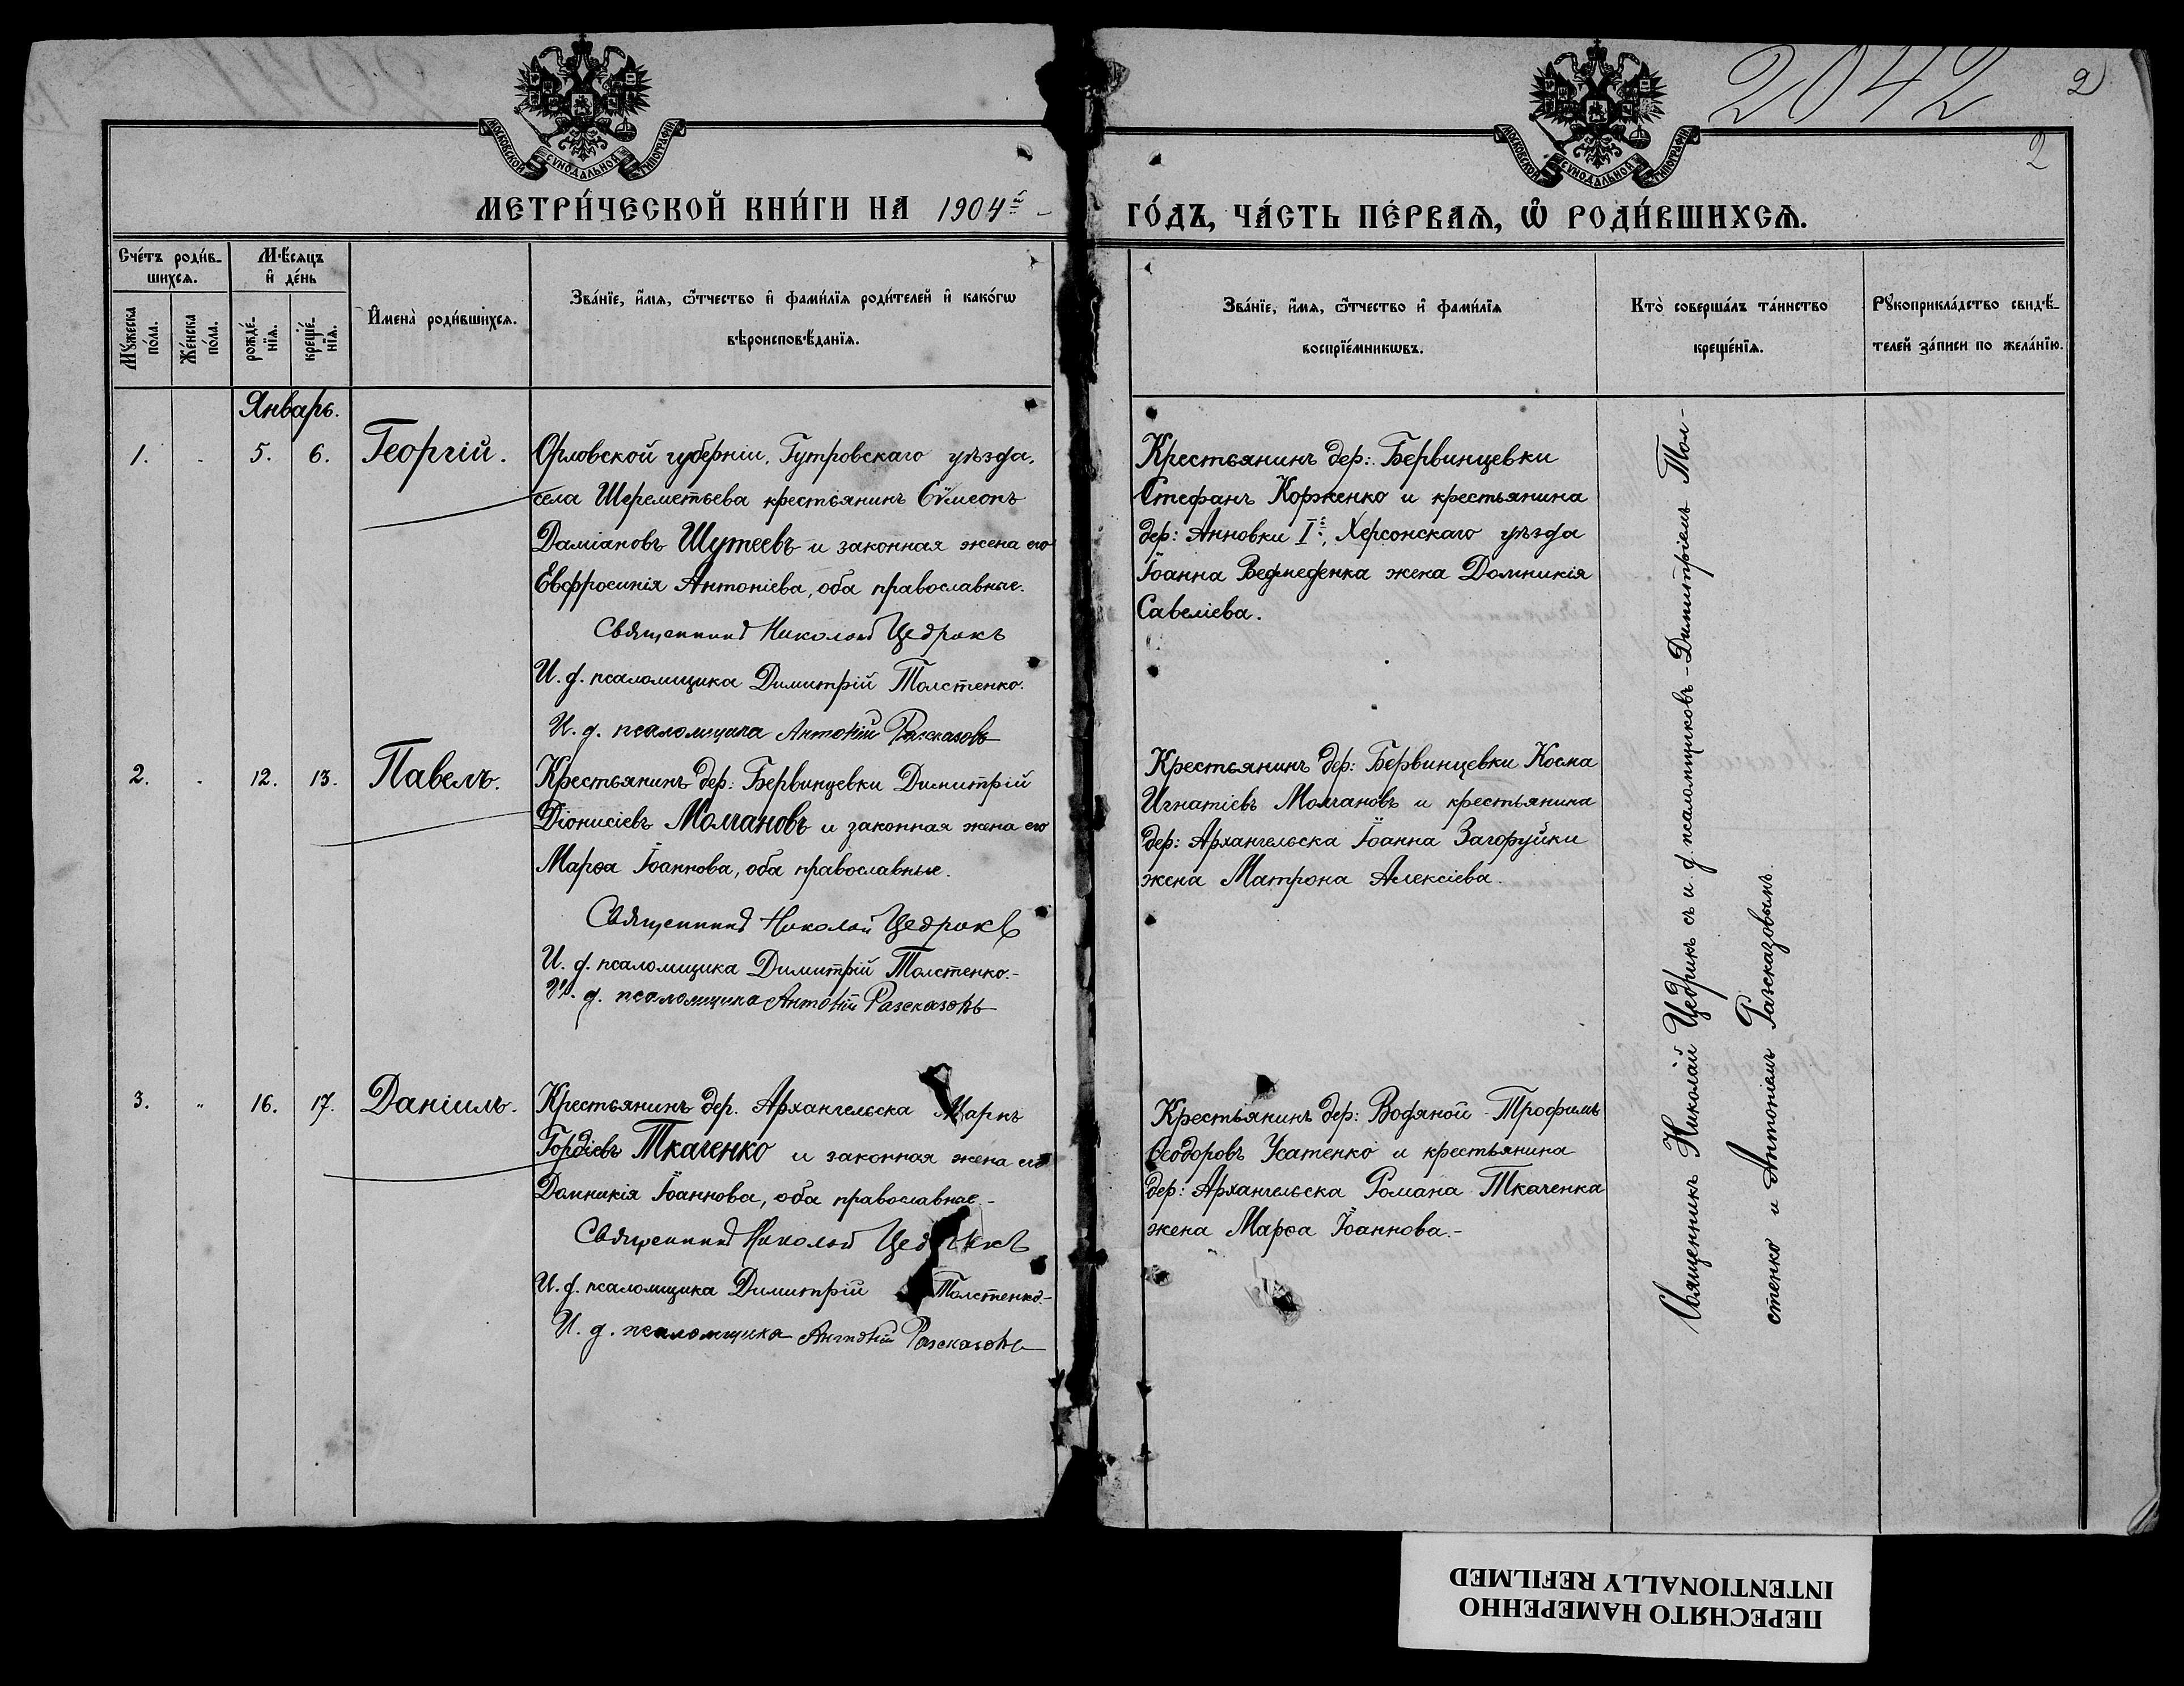 2042
2
2
МОСКОВСКОЙ СѴНОДАЛЬНОЙ ТИПОГРАФІИ
МОСКОВСКОЙ СѴНОДАЛЬНОЙ ТИПОГРАФІИ
МЕТРИ́ЧЕСКОЙ КНИ́ГИ НА 1904й ГО́ДЪ, ЧА́СТЬ ПЕ́РВАЯ, Ѡ҆ РОДИ́ВШИХСѦ.
Сче́тъ роди́вшихсѧ.
Мꙋ́жеска по́ла.
Же́нска по́ла.
Мѣ́сѧцъ и҆ де́нь
рожде́нїѧ.
креще́нїѧ.
И҆мена̀ роди́вшихсѧ.
Зва́нїе, и҆́мѧ, ѻ҆́тчество и҆ фами́лїѧ роди́телей и҆ како́гѡ
вѣроисповѣ́данїѧ.
Зва́нїе, и҆́мѧ, ѻ҆́тчество и҆ фами́лїѧ
воспрїе́мникѡвъ.
Кто̀ соверша́лъ та́инство
креще́нїѧ.
Рꙋкоприкла́дство свидѣ́-
телей за́писи по жела́нїю.
Январь.
1. 5. 6. Георгій.
Орловской губерніи, Гутровскаго уѣзда,
села Шереметьева крестьянинъ Сѵмеонъ
Даміановъ Шутеевъ и законная жена его
Евфросинія Антоніева, оба православные.
Священникъ Николай Цедрикъ
И. д. псаломщика Димитрій Толстенко.
И. д. псаломщика Антоній Разсказовъ
Крестьянинъ дер: Бервинцевки
Стефанъ Корженко и крестьянина
дер: Анновки I-й, Херсонскаго уѣзда
Іоанна Ведмеденка жена Домникія
Савеліева.
2. 12. 13. Павелъ.
Крестьянинъ дер: Бервинцевки Димитрій
Діонисіевъ Молчановъ и законная жена его
Марѳа Іоаннова, оба православные.
Священникъ Николай Цедрикъ
И. д. псаломщика Димитрій Толстенко.-
И. д. псаломщика Антоній Разсказовъ
Крестьянинъ дер: Бервинцевки Косма
Игнатіевъ Молчановъ и крестьянина
дер: Архангельска Іоанна Загоруйки
жена Матрона Алексіева.
3. " 16. 17. Даніилъ.
Крестьянинъ дер. Архангельска Маркъ
Гордіевъ Ткаченко и законная жена его
Домникія Іоаннова, оба православные.-
Священникъ Николай Цедрикъ
И. д. псаломщика Димитрій Толстенко.-
И. д. псаломщика Антоній Разсказовъ
Крестьянинъ дер: Водяной Трофимъ
Ѳеодоровъ Усатенко и крестьянина
дер: Архангельска Романа Ткаченка
жена Марѳа Іоаннова.-
Священникъ Николай Цедрикъ съ и. д. псаломщиковъ - Димитріемъ Тол-
стенко и Антоніемъ Разсказовымъ.
ПЕРЕСНЯТО НАМЕРЕННО
INTENTIONALLY REFILMED